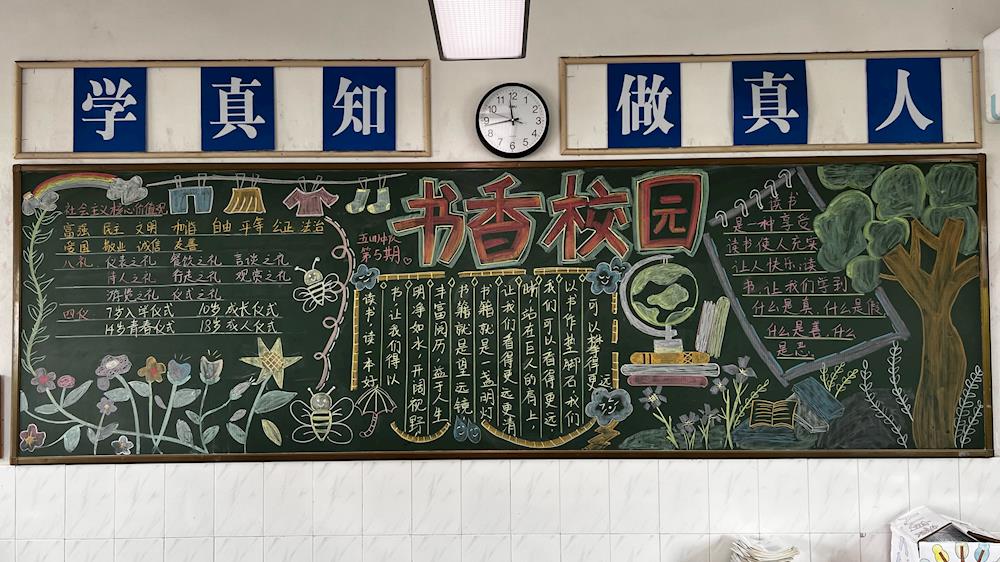 学真知
做真人
社会主义核心价值观
富强 民主 文明 和谐 自由 平等 公正 法治
爱国 敬业 诚信 友善
八礼 仪表之礼 餐饮之礼 言谈之礼
待人之礼 行走之礼 观赏之礼
游览之礼 仪式之礼
四仪 7岁入学仪式 10岁成长仪式
14岁青春仪式 18岁成人仪式
书香校园
五四中队
第5期
可以攀得更远
以书作垫脚石我们
我们可以看得更远
站在巨人的肩上,
让我们看得更远更清
书籍就是一盏明灯
书籍就是望远镜
丰富阅历,益于人生
明净如水,开阔视野
书让我们得以
读书,读一本好
读书
是一种享受
读书使人充实
让人快乐,读
书,让我们学到
什么是真,什么是假
什么是善,什么
是恶